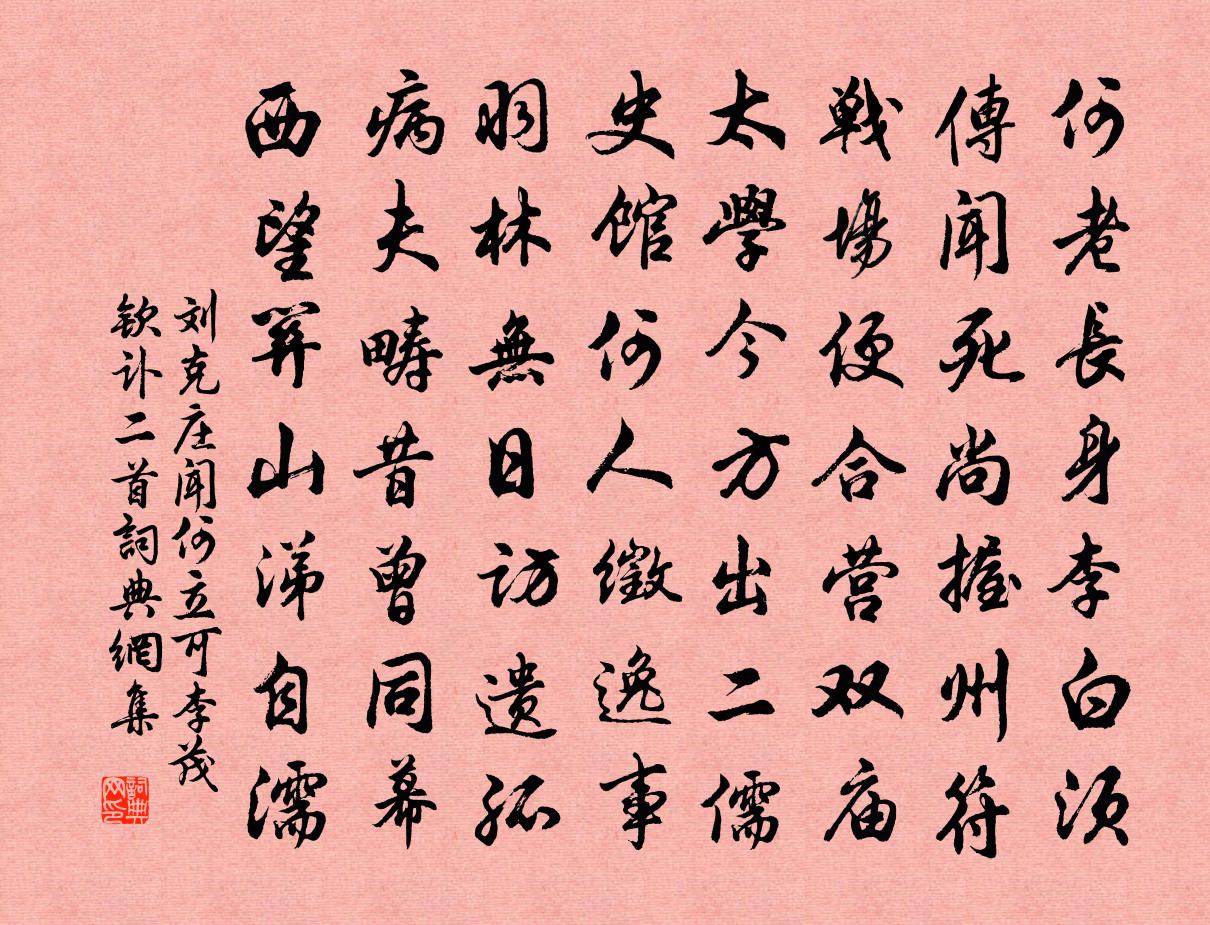 何老長身李白须
傳闻死尚握州符
戦場便合营双庙
太學今方出二儒
史馆何人徵逸事
羽林無日访遗孤
病夫畴昔曾同幕
西望関山涕自濡
刘克庄闻何立可李茂
钦讣二首詞典網集
詞典网印